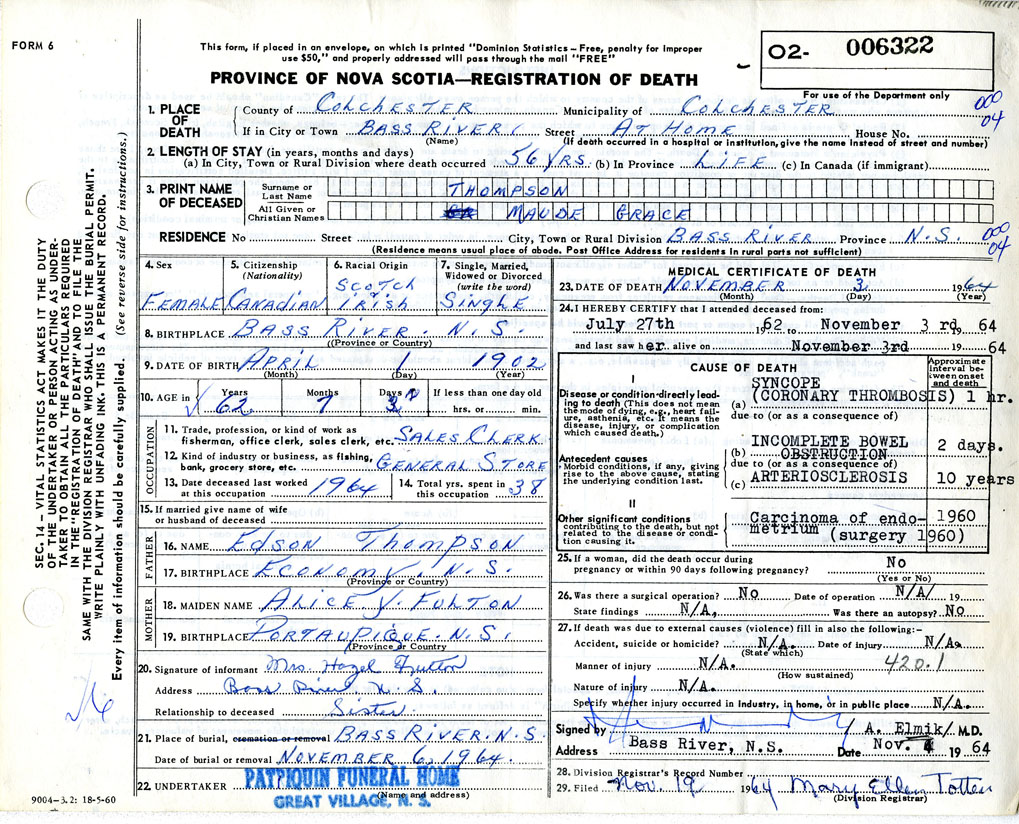 FORM 6
This form, if placed in an envelope, on which is printed "Dominion Statistics – Free, penalty for improper
use $50," and properly addressed will pass through the mail "FREE"
PROVINCE OF NOVA SCOTIA—REGISTRATION OF DEATH
O2- 006322
For use of the Department only
000
04
SEC. 14 – VITAL STATISTICS ACT MAKES IT THE DUTY
OF THE UNDERTAKER OR PERSON ACTING AS UNDER-
TAKER TO OBTAIN ALL THE PARTICULARS REQUIRED
IN THE "REGISTRATION OF DEATH" AND TO FILE THE
SAME WITH THE DIVISION REGISTRAR WHO SHALL ISSUE THE BURIAL PERMIT.
WRITE PLAINLY WITH UNFADING INK. THIS IS A PERMANENT RECORD.
Every item of information should be carefully supplied. (See reverse side for instructions.)
1. PLACE OF DEATH
County of COLCHESTER Municipality of COLCHESTER
If in City or Town BASS RIVER Street AT HOME House No.
(Name) (If death occurred in a hospital or institution, give the name instead of street and number)
2. LENGTH OF STAY (in years, months and days)
(a) In City, Town or Rural Division where death occurred 56 YRS. (b) In Province LIFE (c) In Canada (if immigrant)
3. PRINT NAME OF DECEASED
Surname or Last Name THOMPSON
All Given or Christian Names MAUDE GRACE
RESIDENCE No Street City, Town or Rural Division BASS RIVER Province N.S.
000
04
(Residence means usual place of abode. Post Office Address for residents in rural parts not sufficient)
4. Sex
FEMALE
5. Citizenship (Nationality)
CANADIAN
6. Racial Origin
SCOTCH
IRISH
7. Single, Married, Widowed or Divorced (write the word)
SINGLE
8. BIRTHPLACE BASS RIVER. N.S.
(Province or Country)
9. DATE OF BIRTH APRIL 1 1902
(Month) (Day) (Year)
10. AGE in Years Months Days If less than one day old
62 7 3 hrs. or min.
OCCUPATION
11. Trade, profession, or kind of work as
fisherman, office clerk, sales clerk, etc. SALES CLERK
12. Kind of industry or business, as fishing,
bank, grocery store, etc. GENERAL STORE
13. Date deceased last worked at this occupation 1964
14. Total yrs. spent in this occupation 38
15. If married give name of wife
or husband of deceased
FATHER
16. NAME EDSON THOMPSON
17. BIRTHPLACE ECONOMY, N.S.
(Province or Country)
MOTHER
18. MAIDEN NAME ALICE J. FULTON
19. BIRTHPLACE PORTAUPIQUE. N.S.
(Province or Country)
20. Signature of informant Mrs. Hazel Fulton
Address Bass River N.S.
Relationship to deceased Sister
21. Place of burial, cremation or removal BASS RIVER. N.S.
Date of burial or removal NOVEMBER 6, 1964.
22. UNDERTAKER PATRIQUIN FUNERAL HOME
(Name and address)
GREAT VILLAGE, N. S.
9004–3.2: 18-5-60
MEDICAL CERTIFICATE OF DEATH
23. DATE OF DEATH NOVEMBER 3 1964
(Month) (Day) (Year)
24. I HEREBY CERTIFY that I attended deceased from:
July 27th 62 to November 3 rd, 19 64
and last saw her alive on November 3rd 19 64
CAUSE OF DEATH
Approximate Interval between onset and death
I
Disease or condition directly lead-
ing to death (This does not mean
the mode of dying, e.g., heart fail-
ure, asthenia, etc. It means the
disease, injury, or complication
which caused death.)
SYNCOPE
(a) (CORONARY THROMBOSIS) 1 hr.
due to (or as a consequence of)
Antecedent causes
Morbid conditions, if any, giving
rise to the above cause, stating
the underlying condition last.
INCOMPLETE BOWEL 2 days.
(b) OBSTRUCTION
due to (or as a consequence of)
(c) ARTERIOSCLEROSIS 10 years
II
Other significant conditions
contributing to the death, but not
related to the disease or condi-
tion causing it.
Carcinoma of endo- 1960
metrium (surgery 1960)
25. If a woman, did the death occur during
pregnancy or within 90 days following pregnancy? No
(Yes or No)
26. Was there a surgical operation? No Date of operation N/A/ 19
State findings N/A. Was there an autopsy? No
27. If death was due to external causes (violence) fill in also the following:–
Accident, suicide or homicide? N/A. Date of injury N/A.
(State which)
Manner of injury N/A. 420.1
(How sustained)
Nature of injury N/A.
Specify whether injury occurred in industry, in home, or in public place N/A.
Signed by A. Elmik/ M.D.
Address Bass River, N.S. Date Nov. 4 19 64
28. Division Registrar's Record Number
29. Filed Nov. 19 1964 Mary Ellen Totten
(Division Registrar)